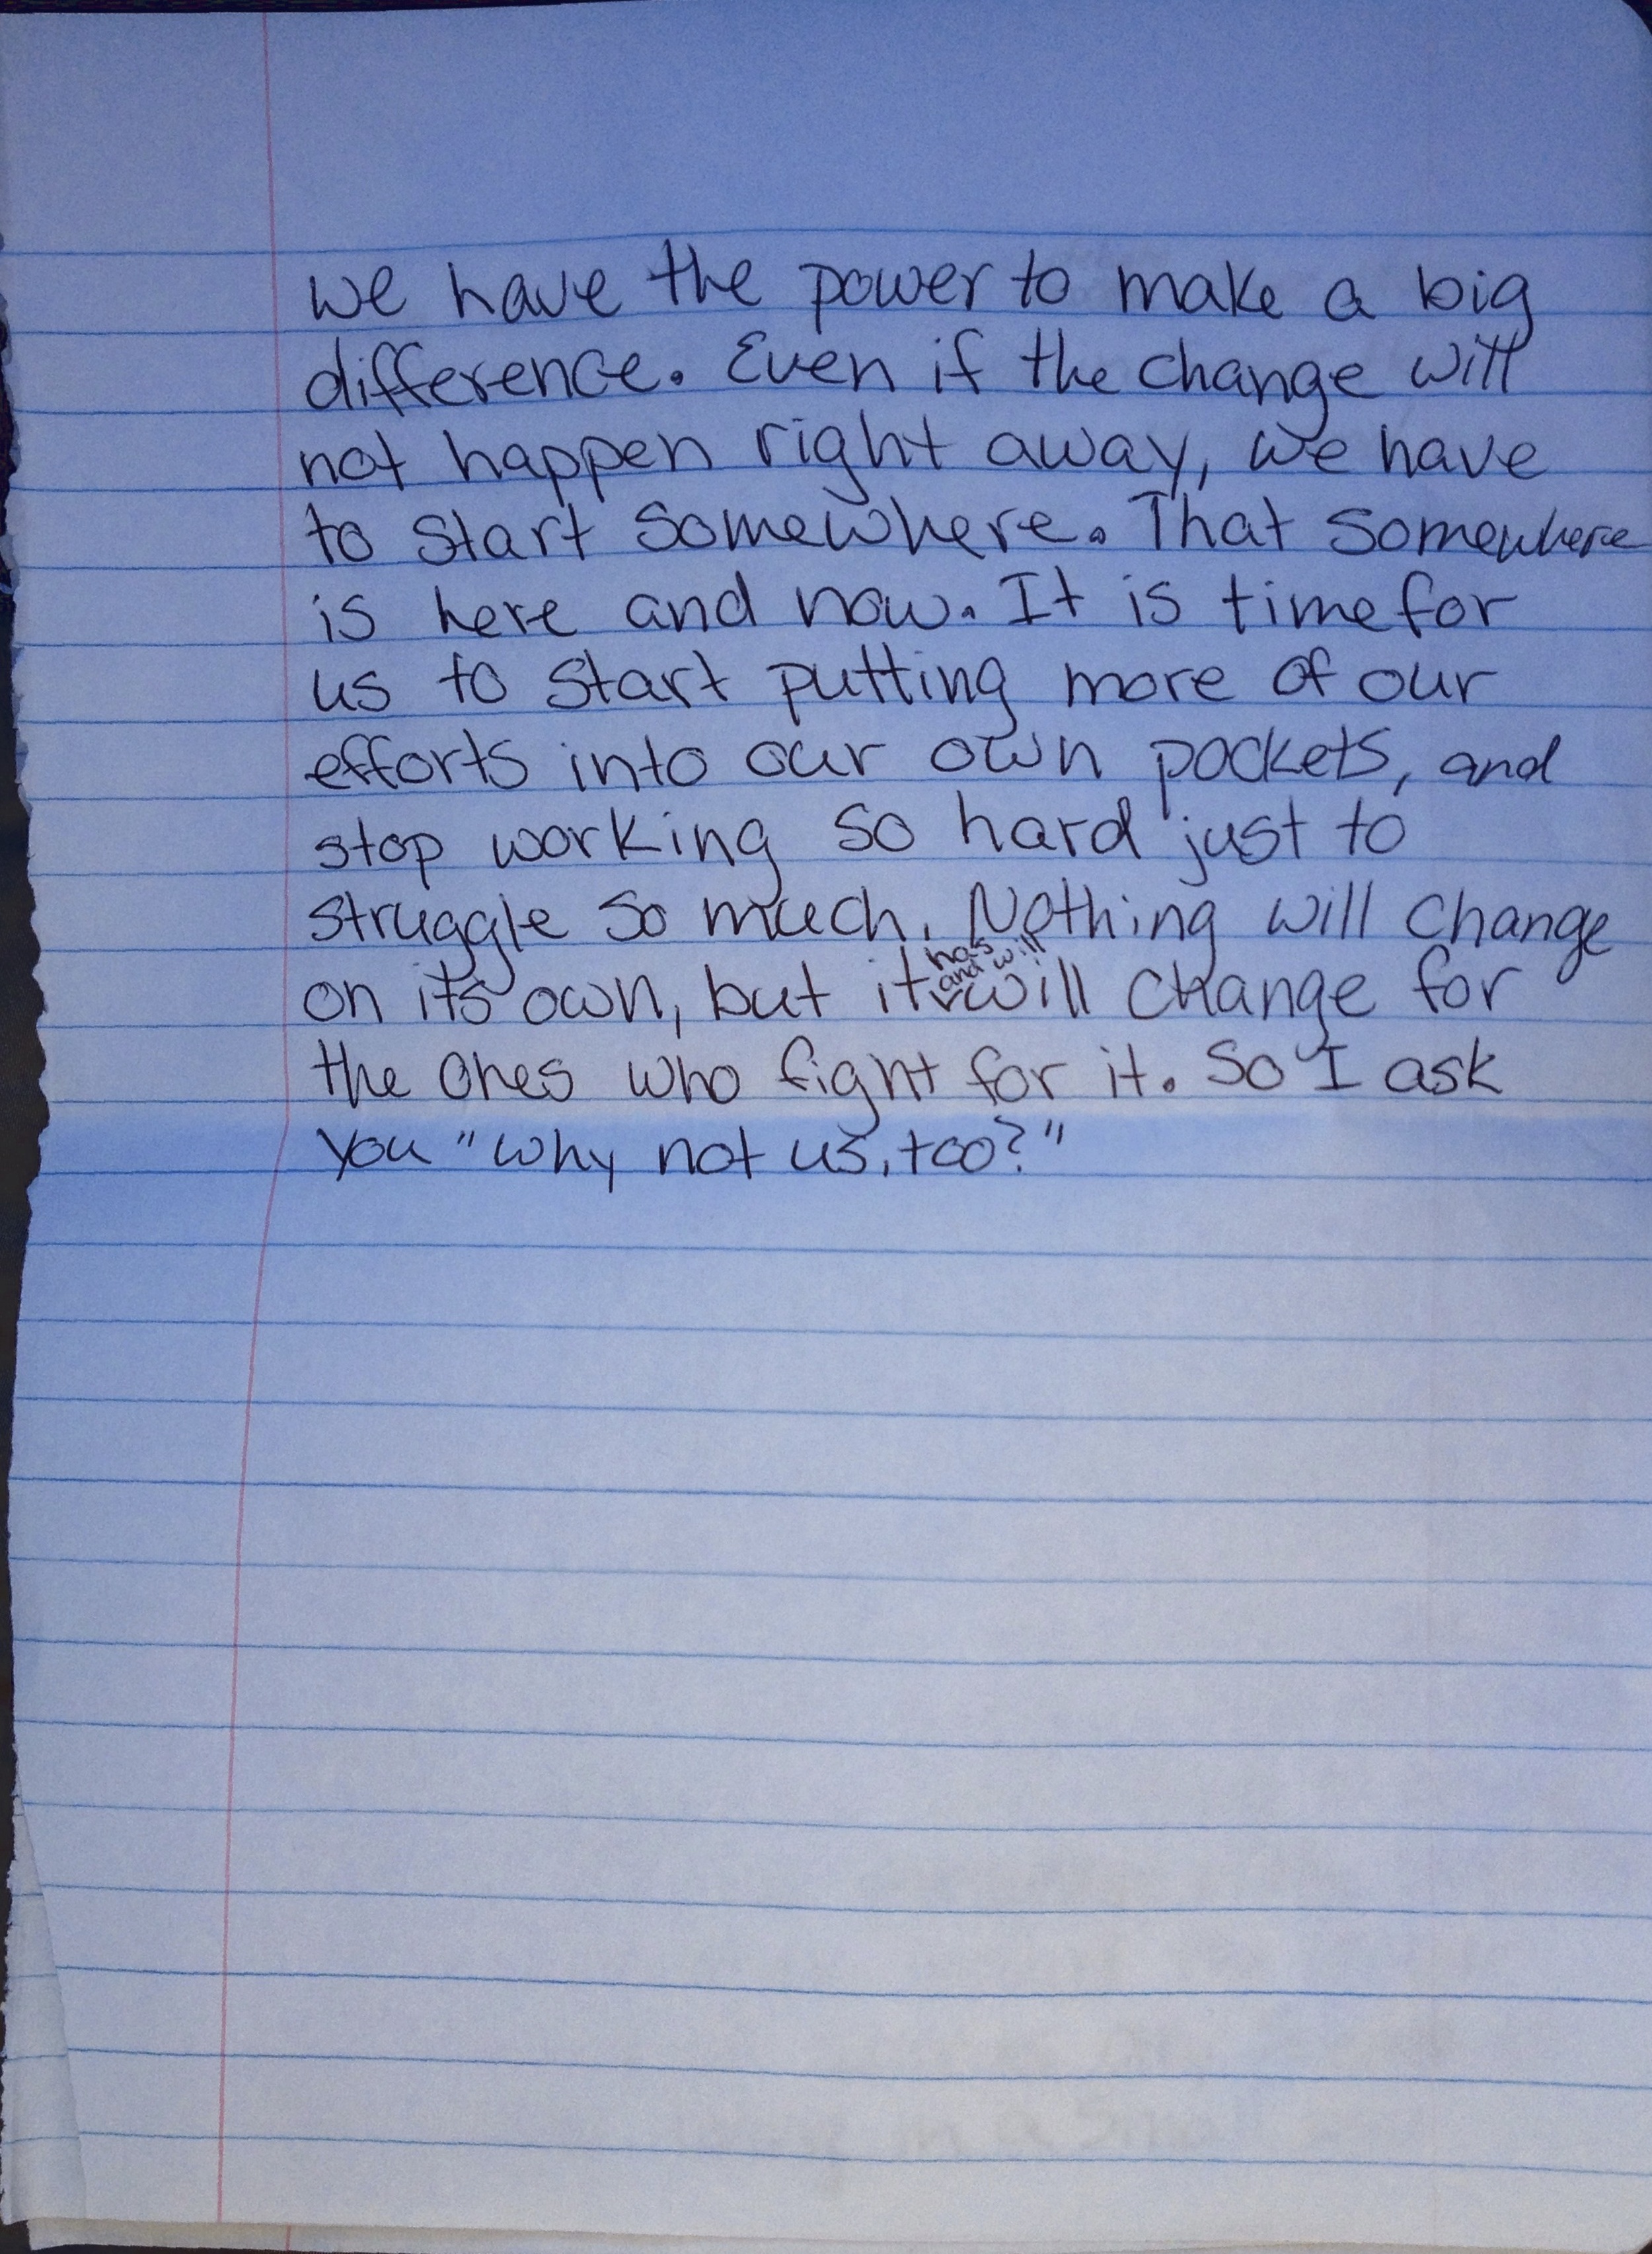 we have the power to make a big
difference. Even if the change will
not happen right away, we have
to start somewhere. That somewhere
is here and now. It is time for
us to start putting more of our
efforts into our own pockets, and
stop working so hard just to
struggle so much. Nothing will change
has
and will
on its own, but it will change for
the ones who fight for it. So I ask
you "why not us, too?"